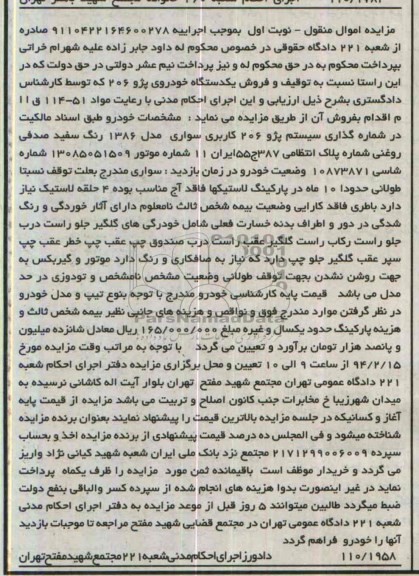 مزایده اموال منقول - نوبت اول بموجب اجراییه ۹۱۱۰۴۲۲۱۶۴۶۰۰۲۷۸ صادره
از شعبه ۲۲۱ دادگاه حقوقی در خصوص محکوم له داود جابر زاده علیه شهرام خراتی
بپرداخت محکوم به در حق محکوم له و نیز پرداخت نیم عشر دولتی در حق دولت که در
این راستا نسبت به توقیف و فروش یکدستگاه خودروی پژو ۲۰۶ که توسط کارشناس
دادگستری بشرح ذیل ارزیابی و این اجرای احکام مدنی با رعایت مواد ۵۱-۱۱۴ ق ا ا
م اقدام بفروش آن از طریق مزایده می نماید : مشخصات خودرو طبق اسناد مالکیت
در شماره گذاری سیستم پژو ۲۰۶ کاربری سواری مدل ۱۳۸۶ رنگ سفید صدفی
روغنی شماره پلاک انتظامی ۳۸۷ج۵۵ایران ۱۱ شماره موتور ۱۳۰۸۵۰۵۱۵۰۹ شماره
شاسی ۱۰۸۷۳۸۷۱ وضعیت خودرو در زمان بازدید : سواری مندرج بعلت توقف نسبتا
طولانی حدودا ۱۰ ماه در پارکینگ لاستیکها فاقد آج مناسب بوده ۴ حلقه لاستیک نیاز
دارد باطری فاقد کارایی وضعیت بیمه شخص ثالث نامعلوم دارای آثار خوردگی و رنگ
شدگی در دور و اطراف بدنه خسارت فعلی شامل خودرگی های گلگیر جلو راست درب
جلو راست رکاب راست گلگیر عقب راست درب صندوق چپ عقب چپ خطر عقب چپ
سپر عقب گلگیر جلو چپ دارد که نیاز به صافکاری و رنگ دارد موتور و گیربکس به
جهت روشن نشدن بجهت توقف طولانی وضعیت مشخص نامشخص و تودوزی در حد
مدل می باشد قیمت پایه کارشناسی خودرو مندرج با توجه بنوع تیپ و مدل خودرو
در نظر گرفتن موارد مندرج فوق و نواقص و هزینه های جانبی نظیر بیمه شخص ثالث و
هزینه پارکینگ حدود یکسال و غیره مبلغ ۱۶۵/۰۰۰/۰۰۰ ریال معادل شانزده میلیون
و پانصد هزار تومان برآورد و تعیین می گردد با توجه به مراتب وقت مزایده مورخ
۹۴/۲/۱۵ از ساعت ۹ الی ۱۰ تعیین و محل برگزاری مزایده دفتر اجرای احکام شعبه
۲۲۱ دادگاه عمومی تهران مجتمع شهید مفتح تهران بلوار آیت اله کاشانی نرسیده به
میدان شهرزیبا خ مخابرات جنب کانون اصلاح و تربیت می باشد مزایده از قیمت پایه
آغاز و کسانیکه در جلسه مزایده بالاترین قیمت را پیشنهاد نمایند بعنوان برنده مزایده
شناخته میشود و فی المجلس ده درصد قیمت پیشنهادی از برنده مزایده اخذ و بحساب
سپرده ۲۱۷۱۲۹۹۰۰۶۰۰۹ مجتمع نزد بانک ملی ایران شعبه شهید کیانی نژاد واریز
می گردد و خریدار موظف است باقیمانده ثمن مورد مزایده را ظرف یکماه پرداخت
نماید در غیر اینصورت بدوا هزینه های انجام شده از سپرده کسر والباقی بنفع دولت
ضبط میگردد طالبین میتوانند ۵ روز قبل از موعد مزایده به دفتر اجرای احکام مدنی
شعبه ۲۲۱ دادگاه عمومی تهران در مجتمع قضایی شهید مفتح مراجعه تا موجبات بازدید
آنها را خودرو فراهم گردد
۱۱۰/۱۹۵۸ دادورز اجرای احکام مدنی شعبه ۲۲۱ مجتمع شهید مفتح تهران